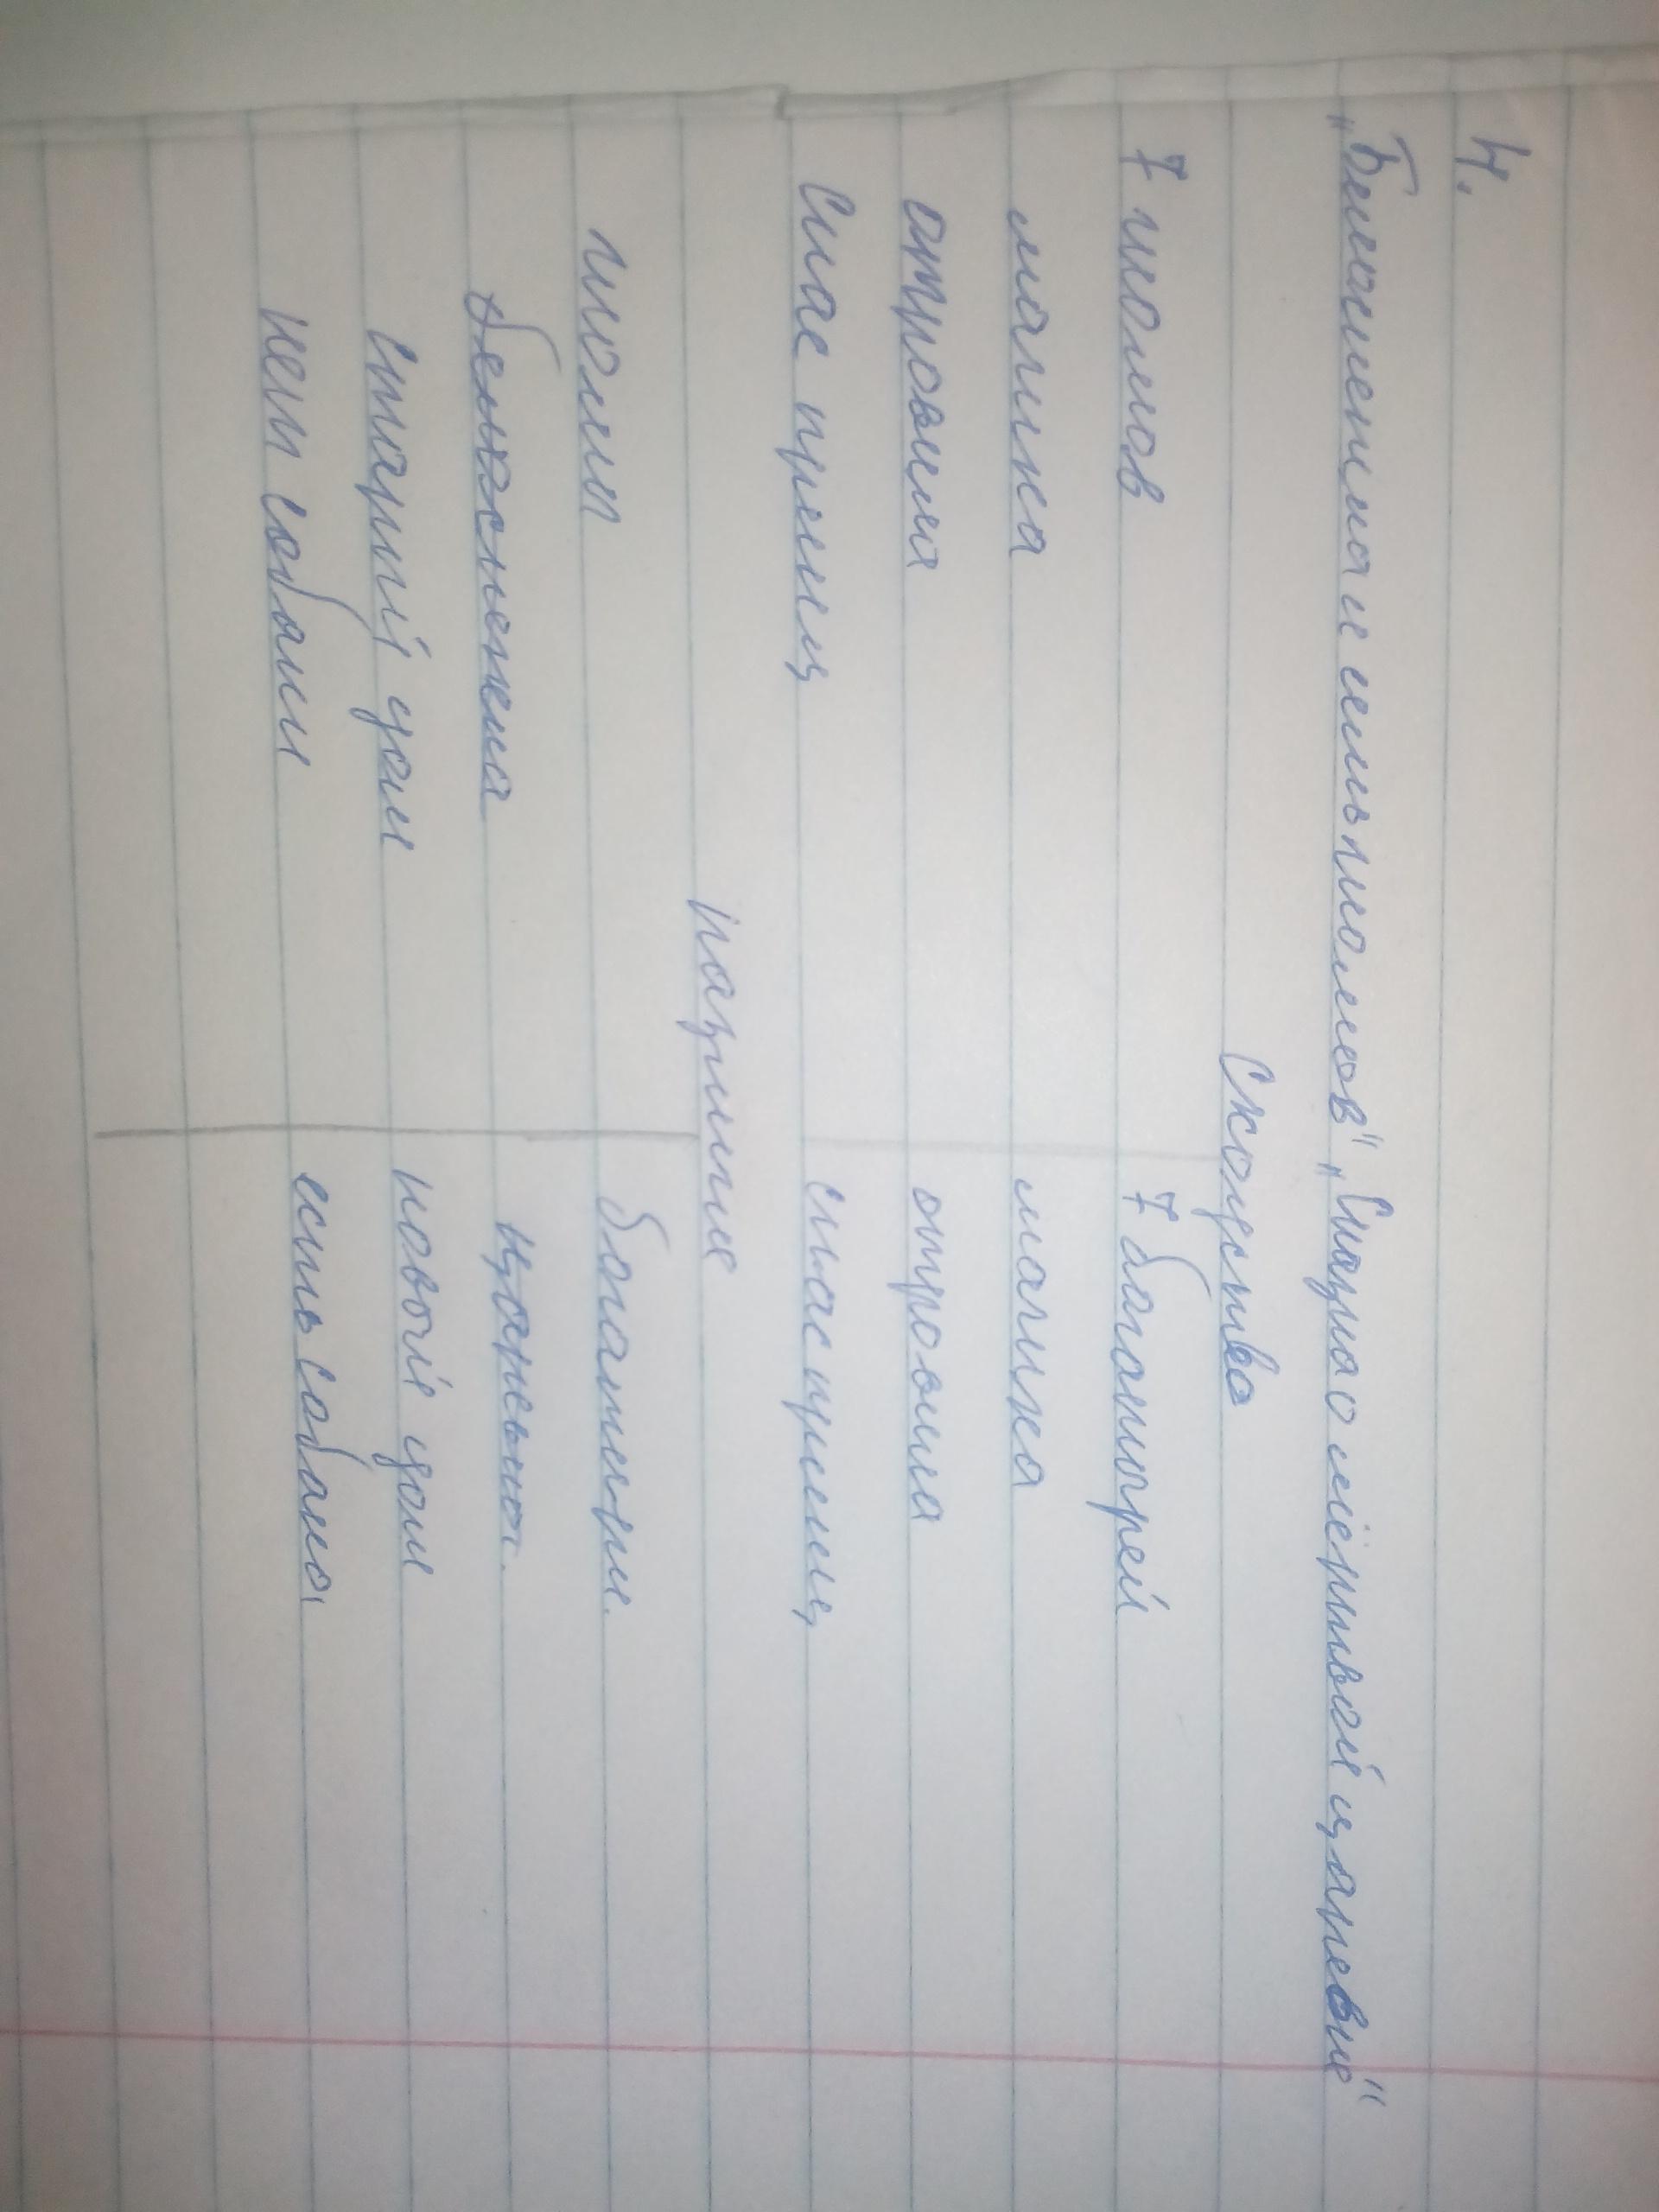 4.
„Белоснежка и семь гномов" „Сказка о мёртвой царевне"
Сходство
7 гномов 7 богатырей
магика магика
отровила отровила
Спас принц спас принц
различие
гномы богатыри.
белоснежка царевна.
старый дом новый дом
нет собаки есть собака